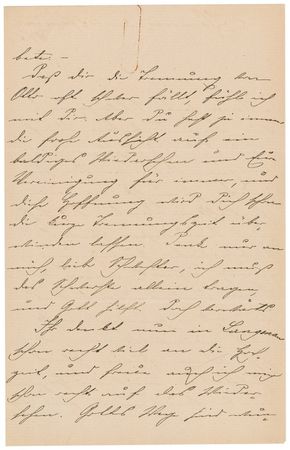 bete. –
Daß dir die Trennung von
Otto oft schwer fällt, fühle ich
mit dir. Aber Du hast ja immer
die frohe Aussicht auf ein
baldiges Wiedersehen und Eure
Vereinigung für immer, und
diese Hoffnung wird Dich schon
die kurze Trennungszeit über-
winden lassen. Denk nur an
mich, liebe Schwester, ich muß
das Schwerste allein tragen,
und Gott hilft. Doch
Ihr denkt nun in Langenau
schon recht viel an die
zeit, und freue auch ich mich
schon recht auf das Wieder-
sehen. Gottes Wege sind